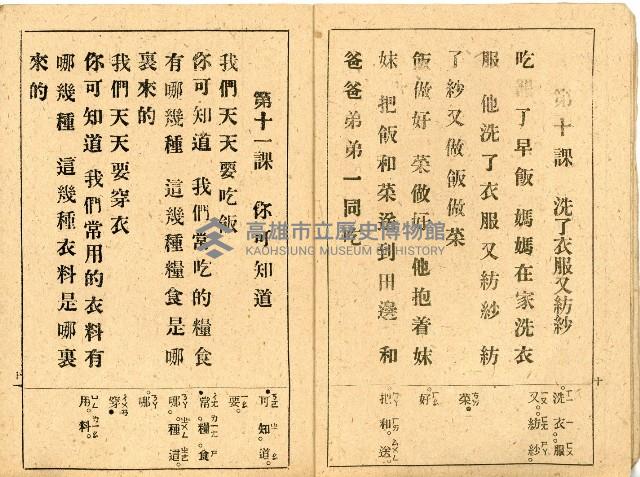 第十課　洗了衣服又紡紗
吃　了早飯　媽媽在家洗衣
服　他洗了衣服又紡紗　紡
了紗又做飯做菜
飯做好　菜做好　他抱着妹
妹　把飯和菜送到田邊　和
爸爸弟弟一同吃
洗　衣　服
又　紡　紗
菜
好
把　和　送
十
第十一課　你可知道
我們天天要吃飯
你可知道　我們常吃的糧食
有哪幾種　這幾種糧食是哪
裏來的
我們天天要穿衣
你可知道　我們常用的衣料有
哪幾種　這幾種衣料是哪裏
來的
可　知　道
要
常　糧　食
哪　種　這
哪
穿
用　料
高雄市立歷史博物館
KAOHSIUNG MUSEUM OF HISTORY